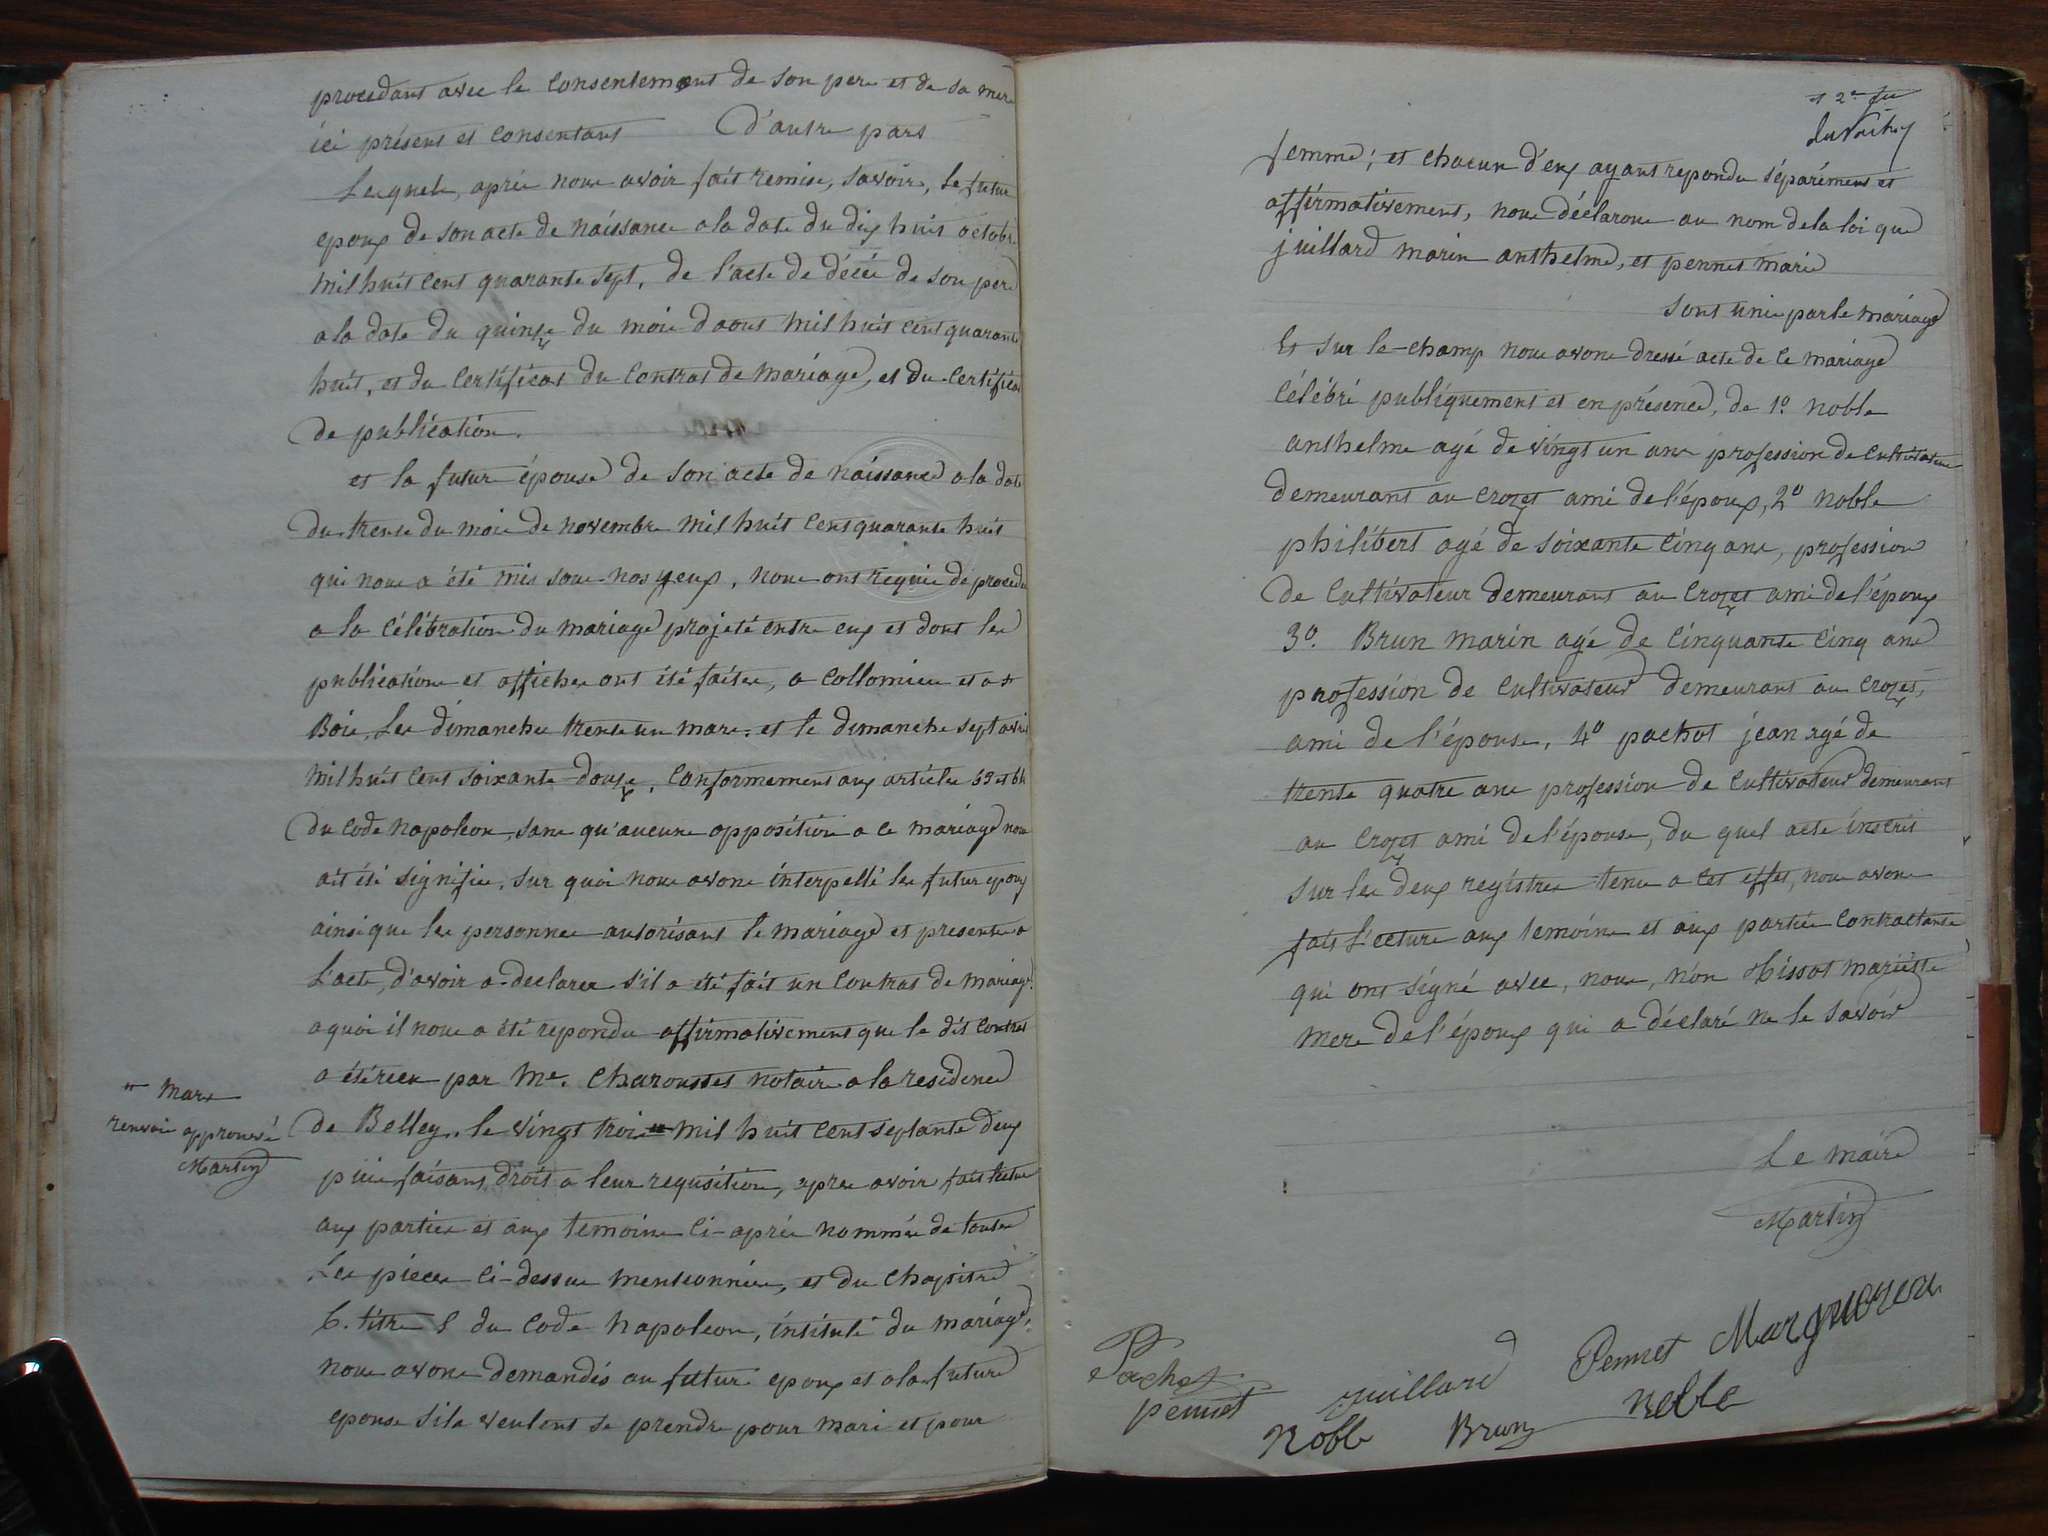 procedant avec le consentement de son pere et de sa mere
ici présent et consentant d'autre part
Lesquels, après nous avoir fait remise, savoir, le futur
epoux de son acte de naissance a la date du dix huit octobre
mil huit cent quarante sept, de l'acte de décès de son pere
a la date du quinze du mois daout mil huit cent quarante
huit, et du certificat du contrat de mariage, et du certificat
de publication.
et la futur épouse de son acte de naissance a la date
du trente du mois de novembre mil huit cent quarante huit
qui nous a été mis sous nos yeux, nous ont requis de proceder
a la célébration du mariage projeté entre eux et dont les
publications et affiches ont été faites, a Collomieu et a st
Bois, les dimanches trente un mars, et le dimanche sept avril
mil huit cent soixante-douze, conformement aux articles 63 et 64
du code napoleon, sans qu'aucune opposition a ce mariage nous
ait été signifiée, sur quoi nous avons interpellé les futur epoux
ainsi que les personnes autorisant le mariage et presentes a
L'acte, d'avoir a declarer s'il a été fait un contrat de mariage
a quoi il nous a été repondu affirmativement que le dit contrat
a été reçu par Me. Charousset notaire a la residence
" Mars
renvoi approuvé
Martin
de Belley, le vingt trois " mil huit cent septante deux
puis faisant droit a leur requsition, apres avoir fait lecture
aux parties et aux temoins ci-après nommés de toutes
Les pieces ci-dessus mensionnées, et du chapitre
6. titre 5 du code napoleon, intitulé du mariage,
nous avons demandés au futur epoux et a la future
epouse s'ils veulent se prendre pour mari et pour
12e fu
femme; et chacun d'eux ayant repondu séparément et
affirmativement, nous déclarons au nom de la loi que
juillard marin anthelme, et pennet marie
sont unis par le mariage
Et sur le-champ nous avons dressé acte de ce mariage
célébré publiquement et en présence, de 1o noble
anthelme agé de vingt un ans profession de cultivateur
demeurant au crozet ami de l'époux, 2o noble
philibert agé de soixante cinq ans, profession
de cultivateur demeurant au crozet ami de l'époux
3o. Brun marin agé de cinquante cinq ans
profession de cultivateur demeurant au crozet,
ami de l'épouse, 4o pachot jean agé de
trente quatre ans profession de cultivateur demeurant
au crozet ami de l'épouse, du quel acte inscrit
sur les deux registres tenu a cet effet, nous avons
fait L'ecture aux temoins et aux parties contractante
qui ont signé avec, nous, n'on Tissot mariette
mere de l'époux qui a déclaré ne le savoir
Le maire
Martin
Pennet Margueron
Pachot
juillard
pennet
Noble
Brun
Noble